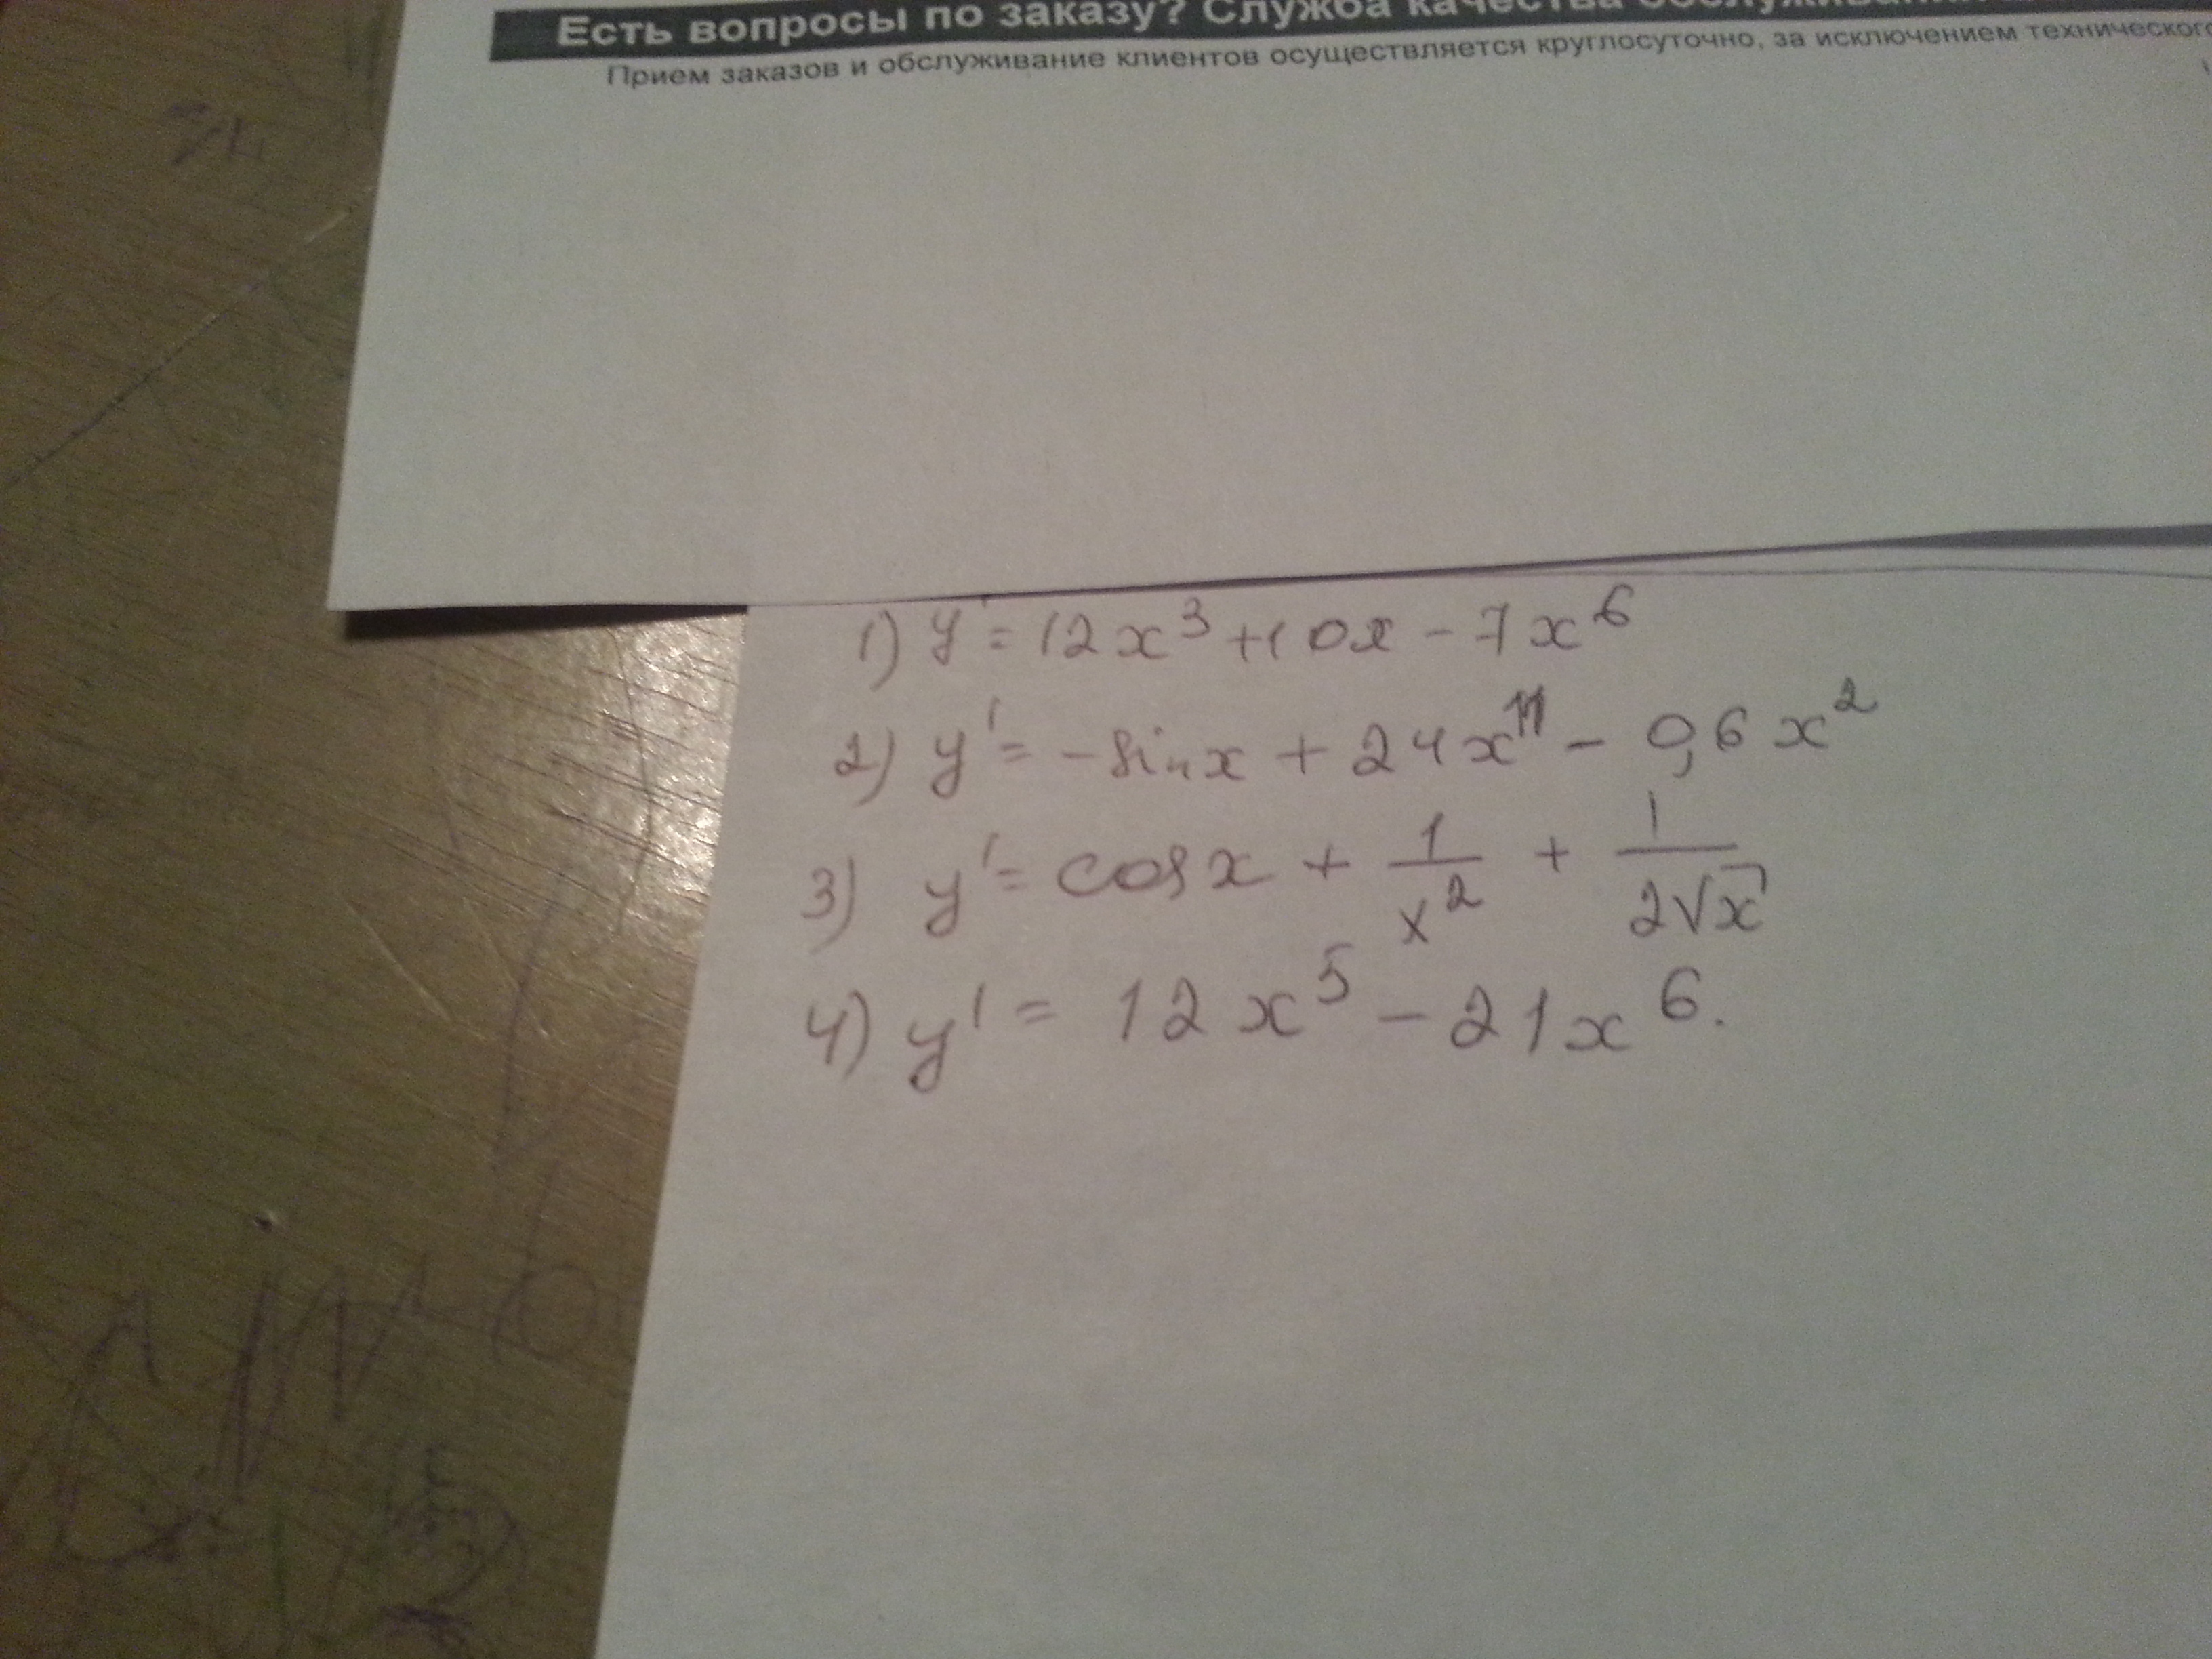 Есть вопросы по заказу? Служба качества
Прием заказов и обслуживание клиентов осуществляется круглосуточно, за исключением технического
1) y' = 12x³ + 10x - 7x⁶
2) y' = -sinx + 24x¹¹ - 0,6x²
3) y' = cosx + 1/x² + 1/(2√x)
4) y' = 12x⁵ - 21x⁶.